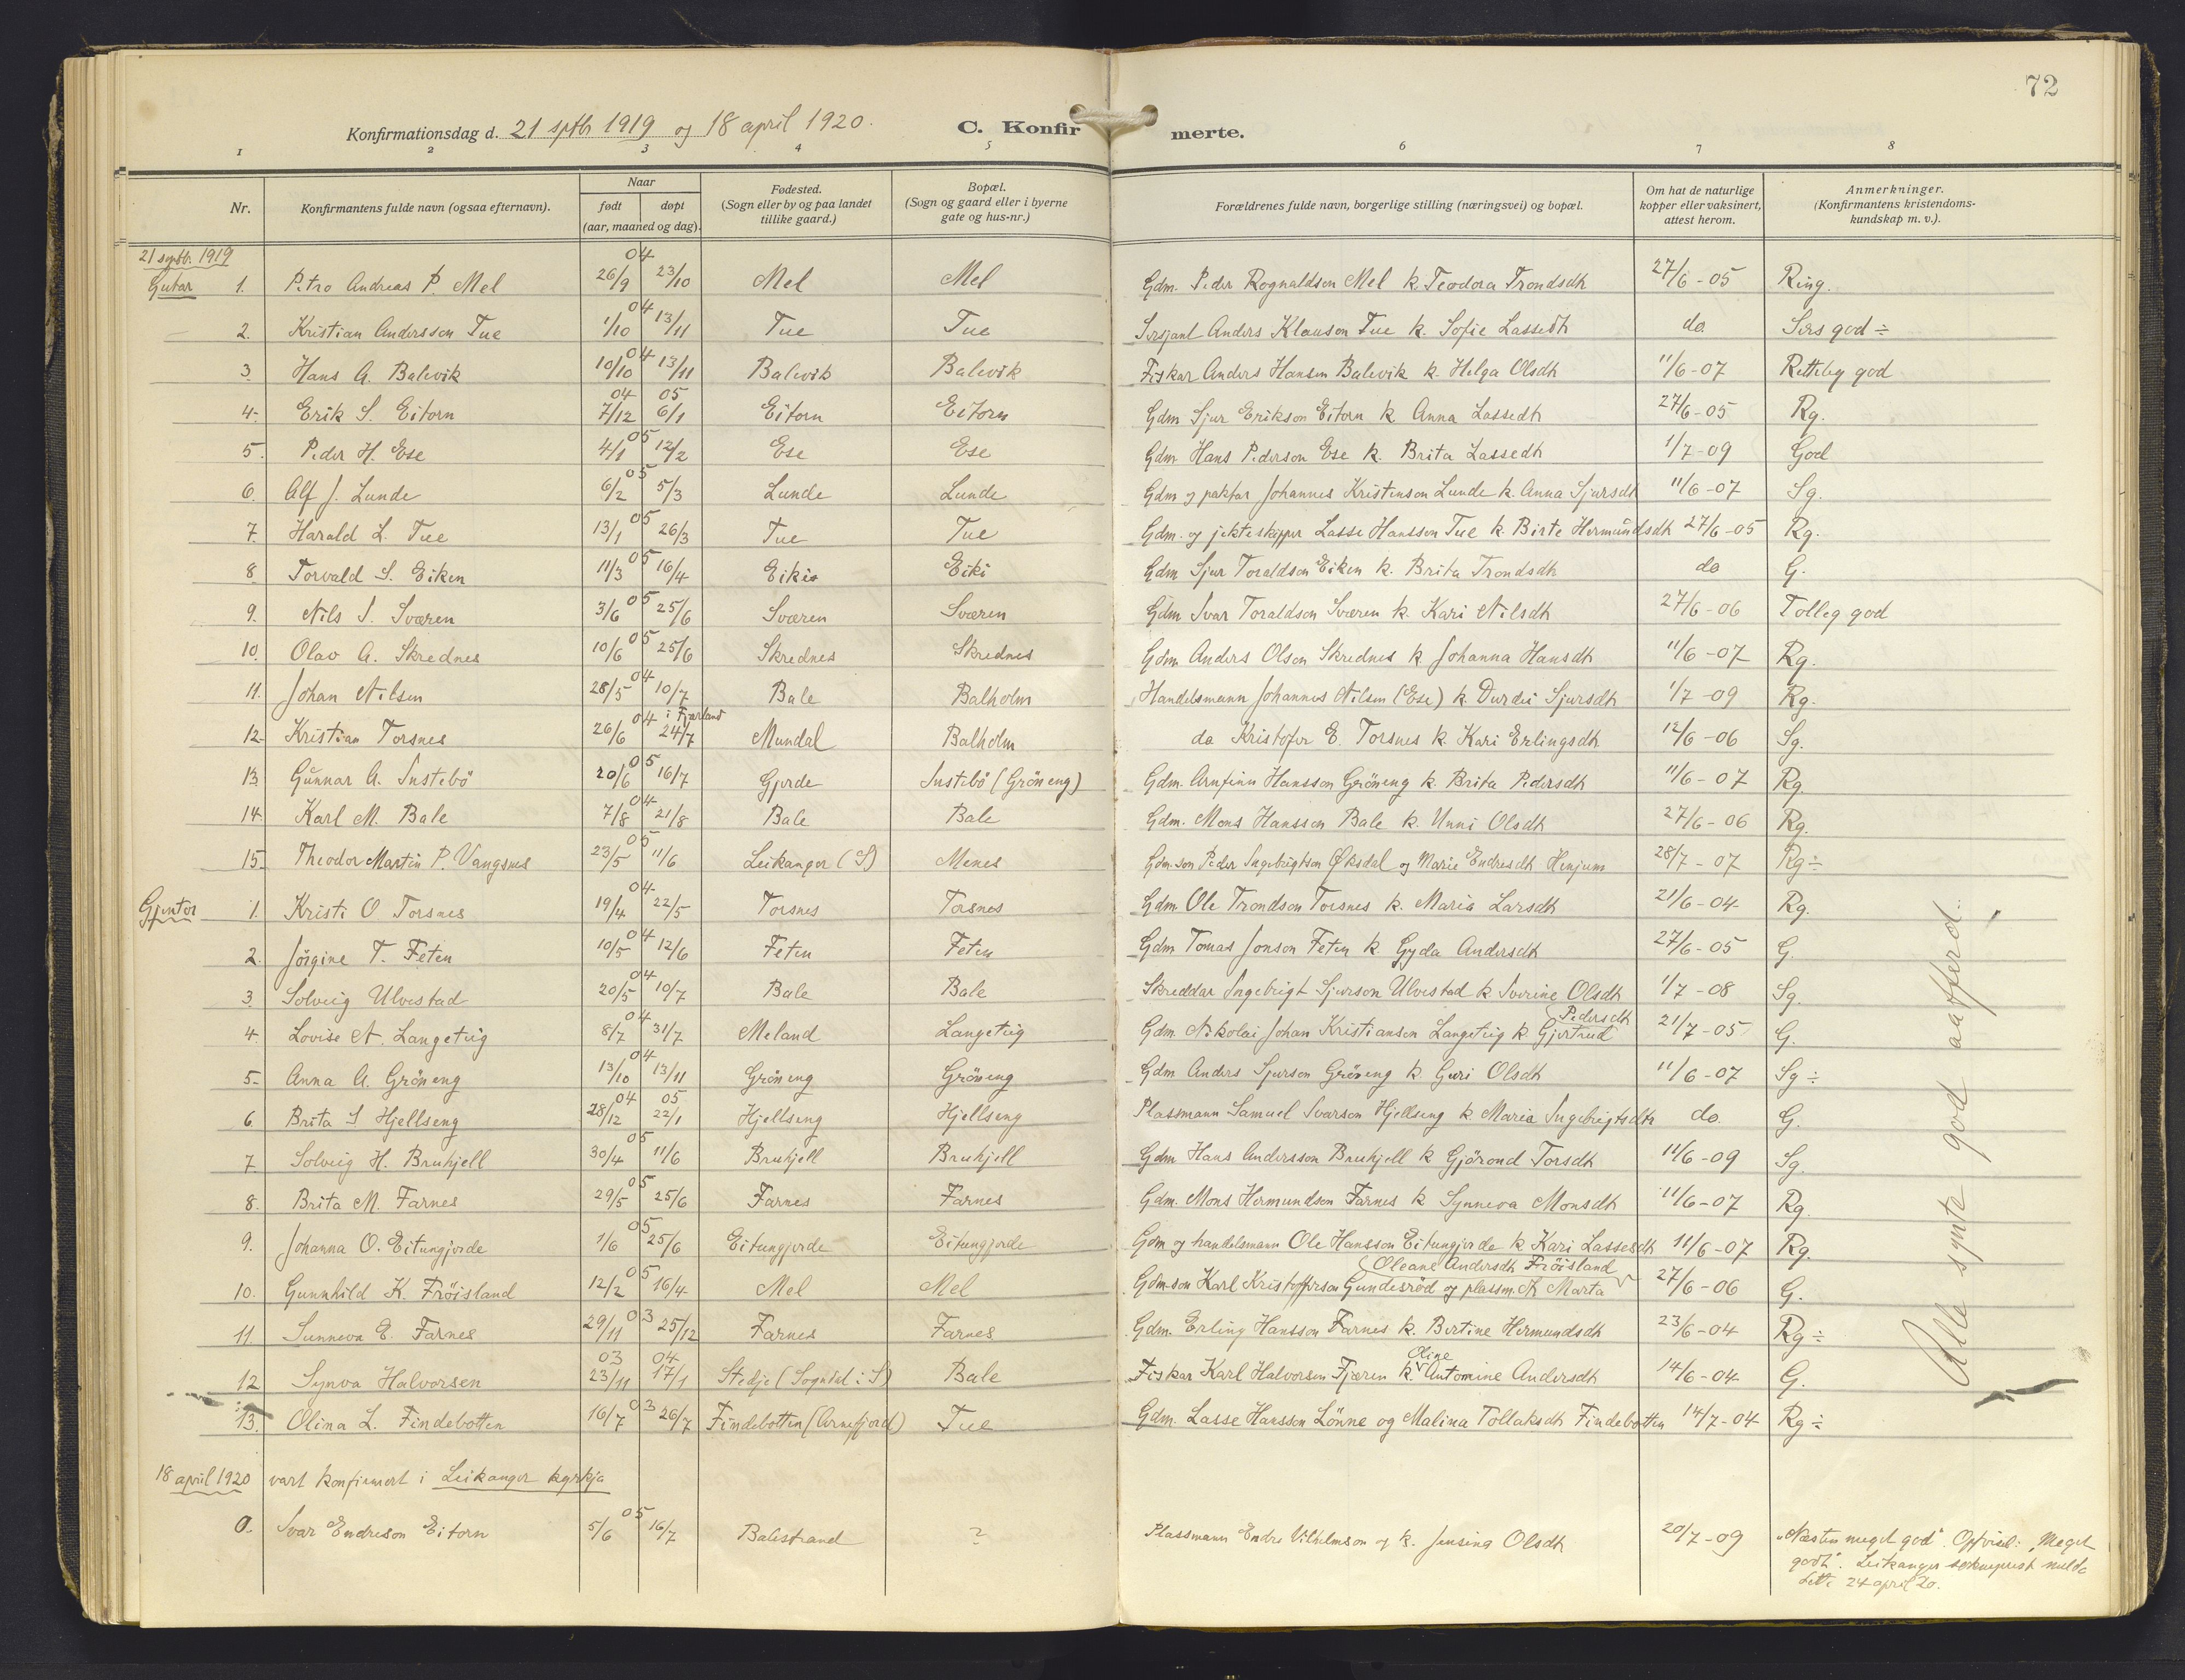 72
Konfirmationsdag d. 21 sptb 1919 og 18 april 1920. C. Konfirmerte.
1 2 3 4 5 6 7 8
Nr. Konfirmantens fulde navn (ogsaa efternavn). Naar født døpt (aar, maaned og dag). Fødested. (Sogn eller by og paa landet tillike gaard.) Bopæl. (Sogn og gaard eller i byerne gate og hus-nr.) Forældrenes fulde navn, borgerlige stilling (næringsvei) og bopæl. Om hat de naturlige kopper eller vaksinert, attest herom. Anmerkninger. (Konfirmantens kristendoms-kundskap m. v.).
21 septb. 1919
Gutar 1. Petro Andreas P. Mel 04 26/9 23/10 Mel Mel Gdm. Peder Rognaldson Mel k. Teodora Trondsdh 27/6-05 Ring.
2. Kristian Andersson Tue 04 1/10 13/11 Tue Tue Anders Klauson Tue k. Sofie Lassedh do Sers god ÷
3. Hans A. Balevik 04 10/10 13/11 Balevik Balevik Fiskar Anders Hansen Balevik k. Helga Olsdh 11/6-07 Retteleg god
4. Erik S. Eitorn 04 7/12 05 6/1 Eitorn Eitorn Gdm Sjur Erikson Eitorn k. Anna Lassedh 27/6-05 Rg.
5. Peder H. Ese 05 4/1 12/2 Ese Ese Gdm Hans Pederson Ese k. Brita Lassedh 1/7-09 God
6. Alf J. Lunde 05 6/2 5/3 Lunde Lunde Gdm og paktar Johannes Kristenson Lunde k. Anna Sjursdh 11/6-07 Sg.
7. Harald L. Tue 05 13/1 26/3 Tue Tue Gdm. og jekteskipper Lasse Hansson Tue k. Birte Hermundsdh 27/6-05 Rg.
8 Torvald S. Eiken 05 11/3 16/4 Eiki Eiki Gdm Sjur Toraldson Eiken k. Brita Trondsdh do G.
9. Nils I. Sværen 05 3/6 25/6 Sværen Sværen Gdm Ivar Toraldson Sværen k. Kari Nilsdh 27/6-06 Tolleg god
10. Olav A. Skrednes 05 10/6 25/6 Skrednes Skrednes Gdm Anders Olson Skrednes k. Johanna Hansdh 11/6-07 Rg.
11. Johan Nilsen 04 28/5 10/7 Bale Balholm Handelsmann Johannes Nilsen (Ese) k. Durdei Sjursdh 1/7-09 Rg.
12. Kristian Torsnes 04 26/6 i Fjærland 24/7 Mundal Balholm do Kristofer E. Torsnes k. Kari Erlingsdh 12/6-06 Sg.
13. Gunnar A. Instebö 05 20/6 16/7 Gjerde Instebö (Gröneng) Gdm. Arnfinn Hansson Gröneng k. Brita Pedersdh 11/6-07 Rg.
14. Karl M. Bale 04 7/8 21/8 Bale Bale Gdm. Mons Hansson Bale k. Unni Olsdh 27/6-06 Rg.
15. Theodor Martin P. Vangsnes 05 23/5 11/6 Leikanger (S) Menes Gdm.son Peder Ingebrigtson Øksdal og Marie Endresdh Henjum 28/7-07 Rg÷
Gjentor 1. Kristi O. Torsnes 04 19/4 22/5 Torsnes Torsnes Gdm. Ole Trondson Torsnes k. Maria Larsdh 21/6-04 Rg.
2. Jörgine T. Feten 04 10/5 12/6 Feten Feten Gdm Tomas Jonson Feten k. Gyda Andersdh 27/6-05 G.
3. Solveig Ulvestad 04 20/5 10/7 Bale Bale Skreddar Ingebrigt Sjurson Ulvestad k. Sverine Olsdh 1/7-08 Sg.
4. Lovise N. Langeteig 04 8/7 31/7 Meland Langeteig Gdm Nikolai Johan Kristiansen Langeteig k. Gjertrud Pedersdh 21/7-05 G.
5. Anna A. Gröneng 04 13/10 13/11 Gröneng Gröneng Gdm Anders Sjurson Gröneng k. Guri Olsdh 11/6-07 Sg ÷
6. Brita S Hjellseng 04 28/12 05 22/1 Hjellseng Hjellseng Plassmann Samuel Ivarson Hjellseng k. Maria Ingebrigtsdh do. G.
7. Solveig H. Bruhjell 05 30/4 11/6 Bruhjell Bruhjell Gdm Hans Andersson Bruhjell k Gjörond Torsdh 11/6-09 Sg.
8. Brita M. Farnes 05 29/5 25/6 Farnes Farnes Gdm. Mons Hermundson Farnes k Synneva Monsdh 11/6-07 Rg.
9. Johanna O. Eitungjerde 05 1/6 25/6 Eitungjerde Eitungjerde Gdm og handelsmann Ole Hansson Eitungjerde k. Kari Lassesdh 11/6-07 Rg.
10. Gunnhild K. Fröisland 05 12/2 16/4 Mel Mel Gdm-son Karl Kristofferson Gundesröd og plassm. Marta Oleane Andersdh Fröisland 27/6-06 G.
11. Sunneva E. Farnes 03 29/11 25/12 Farnes Farnes Gdm. Erling Hansson Farnes k. Bertine Hermundsdh 23/6-04 Rg ÷
12. Synva Halvorsen 03 23/11 04 17/1 Stedje (Sogndal i S) Bale Fiskar Karl Halvorsen Fjæren k. Oline Antomine Andersdh 14/6-04 G.
13. Olina L. Findebotten 03 16/7 26/7 Findebotten (Arnefjord) Tue Gdm. Lasse Hansson Lönne og Malina Tollaksdh Findebotten 14/7-04 Rg ÷
Alle synte god aatferd.
18 april 1920 vart konfirmert i Leikanger kyrkja
0. Ivar Endreson Eitorn 05 5/6 16/7 Balestrand ? Plassmann Endre Vilhelmson og k. Jensina Olsdh 20/7-09 „Næsten meget god". Opførsel: „Meget
godt". Leikanger sokneprest melde
dette 24 april 20.